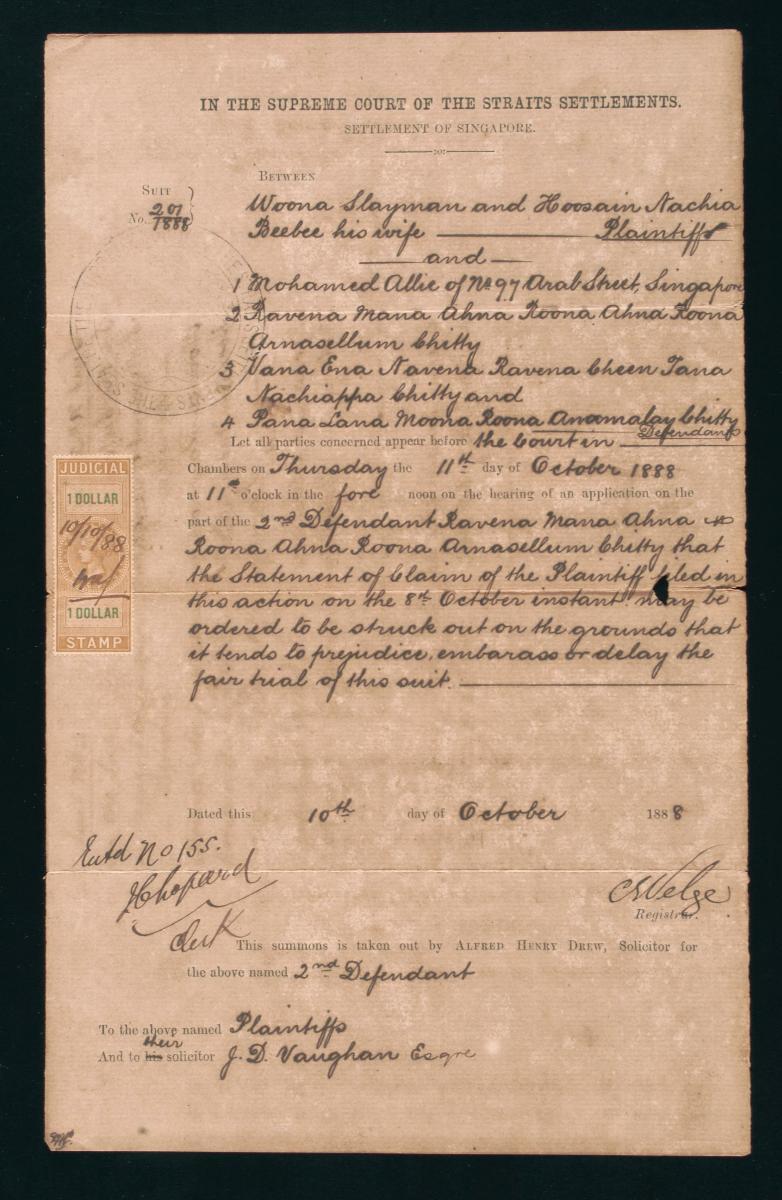 IN THE SUPREME COURT OF THE STRAITS SETTLEMENTS.
SETTLEMENT OF SINGAPORE.
BETWEEN
SUIT
No. 201/1888
Woona Slayman and Hoosain Nachia
Beebee his wife Plaintiffs
and
1 Mohamed Allie of No 97 Arab Street, Singapore
2 Ravena Mana Ahna Roona Ahna Roona
Arnasellum Chitty
3 Vana Ena Navena Ravena Cheen Tana
Nachiappa Chitty and
4 Pana Lana Moona Roona Anamalay Chitty
Defendants
Let all parties concerned appear before the Court in
Chambers on Thursday the 11th day of October 1888
at 11 o'clock in the fore noon on the hearing of an application on the
part of the 2nd Defendant Ravena Mana Ahna
Roona Ahna Roona Arnasellum Chitty that
the Statement of Claim of the Plaintiff filed in
this action on the 8th October instant may be
ordered to be struck out on the grounds that
it tends to prejudice, embarass or delay the
fair trial of this suit.
JUDICIAL
1 DOLLAR
10/10/88
1 DOLLAR
STAMP
Dated this 10th day of October 1888
Entd No 155.
Chopard
Clerk
CWelge
Registrar.
This summons is taken out by ALFRED HENRY DREW, Solicitor for
the above named 2nd Defendant
To the above named Plaintiffs
And to his their solicitor J. D. Vaughan Esqre